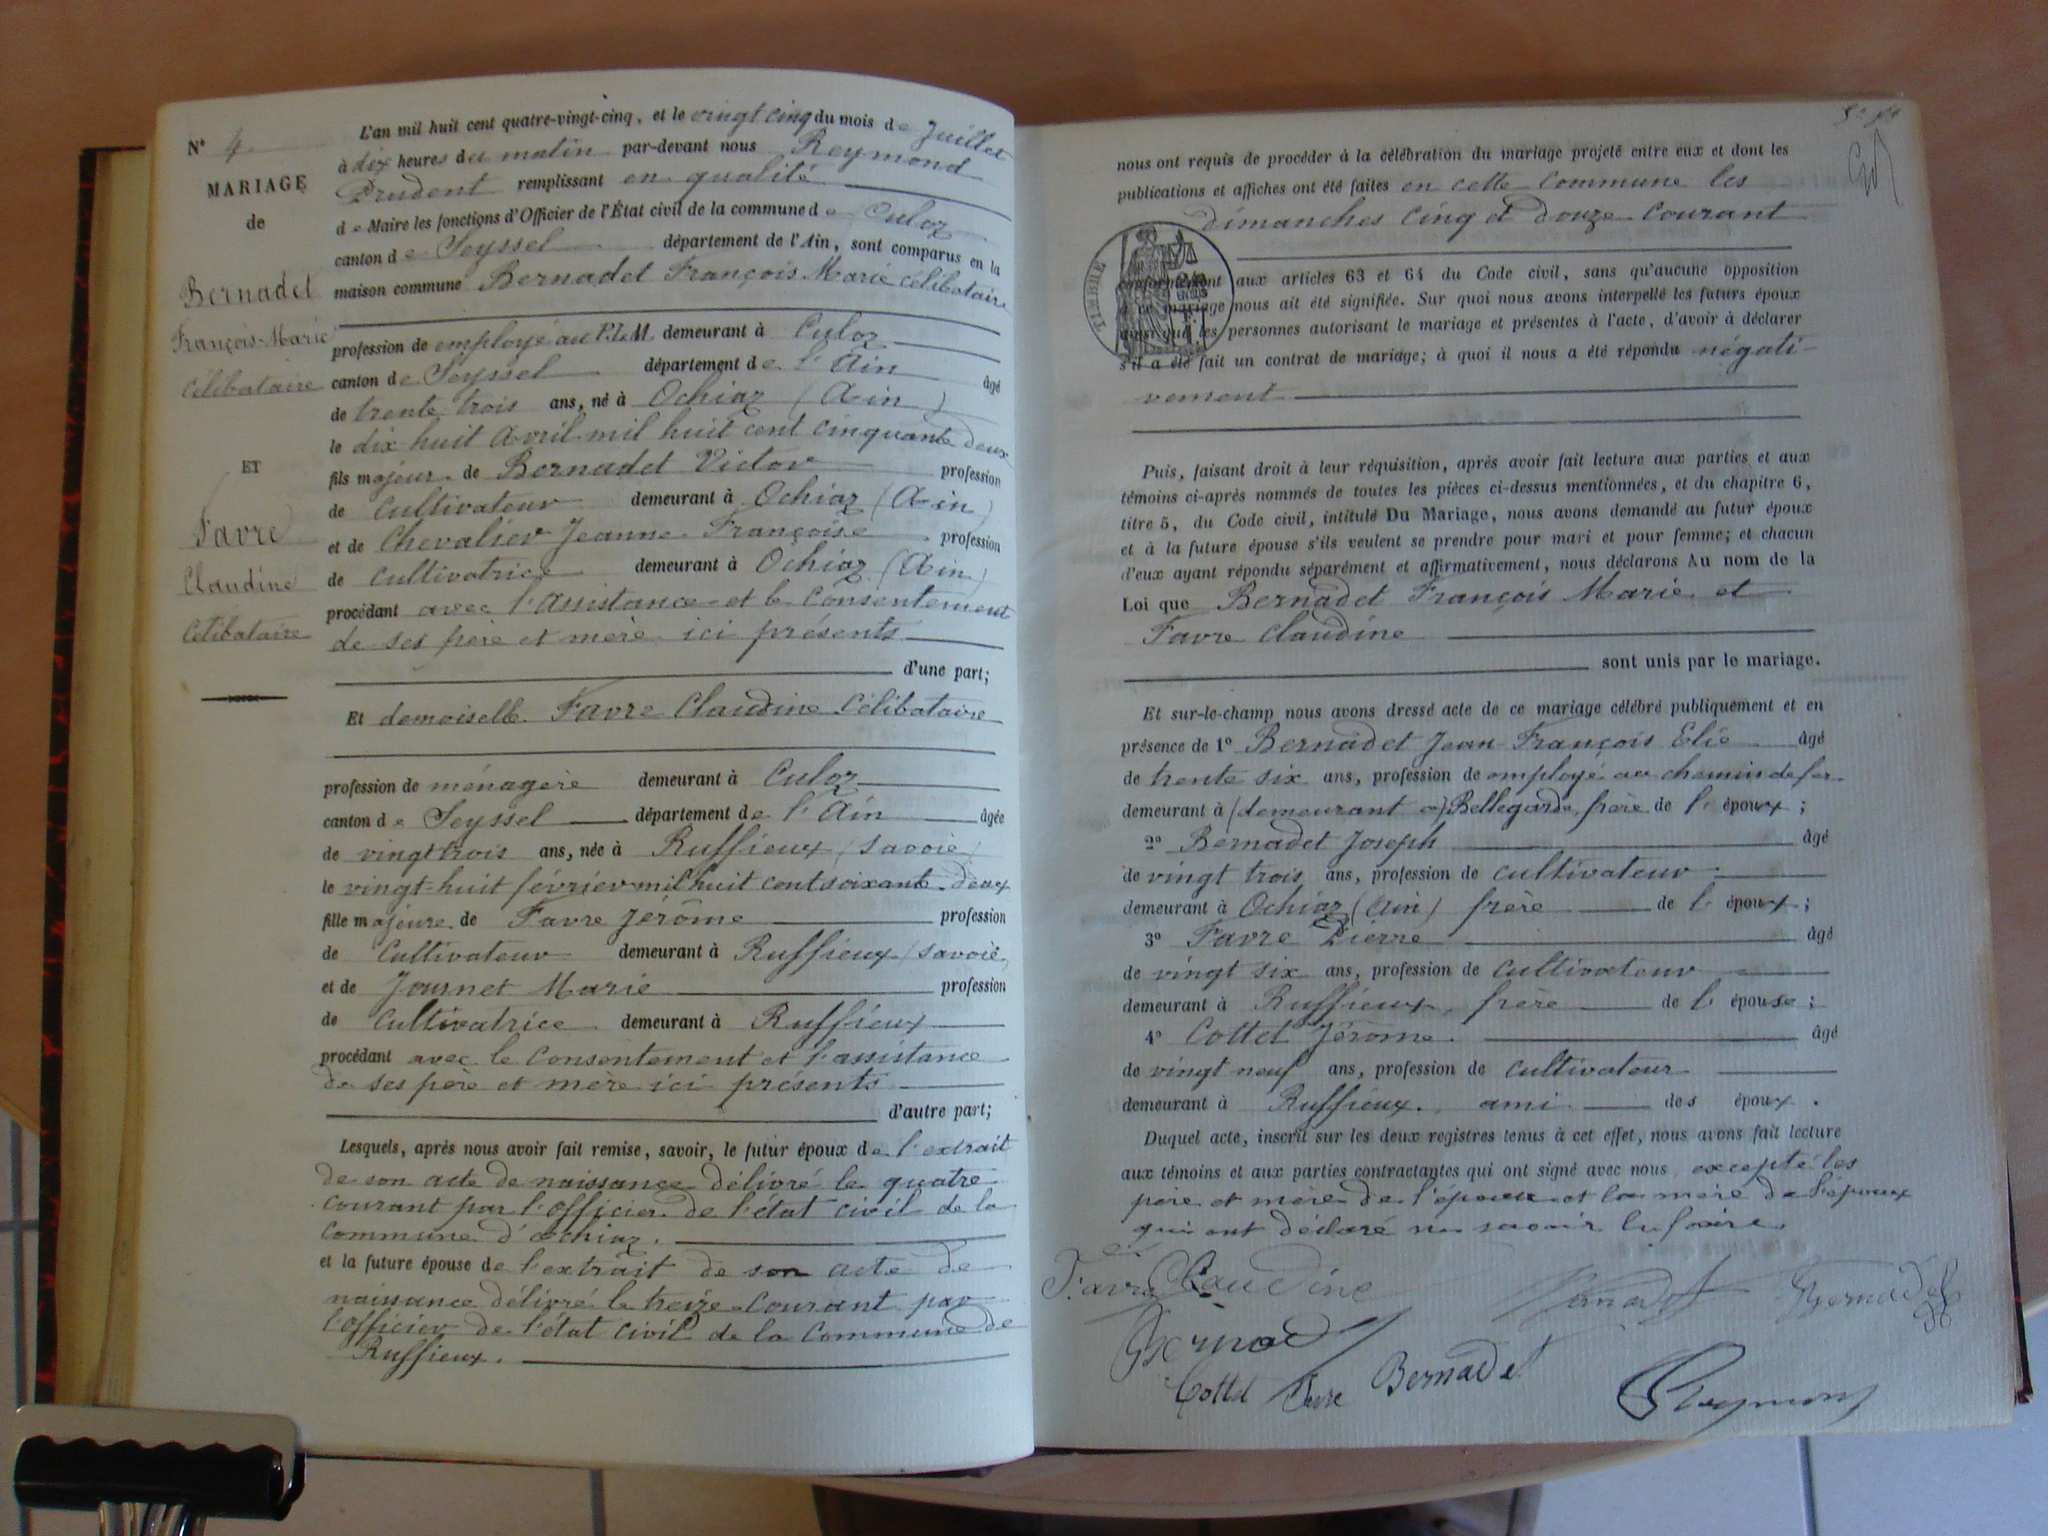 N° 4
MARIAGE
de
Bernadet
François-Marie
célibataire
ET
Favre
Claudine
Célibataire
L'an mil huit cent quatre-vingt-cinq, et le vingt cinq du mois de Juillet
à dix heures du matin par-devant nous Reymond
Prudent remplissant en qualité
de Maire les fonctions d'Officier de l'État civil de la commune de Culoz
canton de Seyssel département de l'Ain, sont comparus en la
maison commune Bernadet François Marie célibataire
profession de employé au P.L.M. demeurant à Culoz
canton de Seyssel département de l'Ain âgé
de trente trois ans, né à Ochiaz (Ain)
le dix huit Avril mil huit cent cinquante deux
fils majeur de Bernadet Victor profession
de Cultivateur demeurant à Ochiaz (Ain)
et de Chevalier Jeanne Françoise profession
de cultivatrice demeurant à Ochiaz (Ain)
procédant avec l'Assistance et le Consentement
de ses père et mère ici présents
d'une part;
Et demoiselle Favre Claudine Célibataire
profession de ménagère demeurant à Culoz
canton de Seyssel département de l'Ain âgée
de vingt trois ans, née à Ruffieux (Savoie)
le vingt-huit février mil huit cent soixante-deux
fille majeure de Favre Jérôme profession
de Cultivateur demeurant à Ruffieux (Savoie)
et de Journet Marie profession
de Cultivatrice demeurant à Ruffieux
procédant avec le Consentement et l'assistance
de ses père et mère ici présents
d'autre part;
Lesquels, après nous avoir fait remise, savoir, le futur époux de l'extrait
de son acte de naissance délivré le quatre
courant par l'officier de l'état civil de la
commune d'ochiaz.
et la future épouse de l'extrait de son acte de
naissance délivré le treize courant par
l'officier de l'état civil de la Commune de
Ruffieux.
nous ont requis de procéder à la célébration du mariage projeté entre eux et dont les
publications et affiches ont été faites en cette commune les
dimanches cinq et douze courant
TIMBRE
conformément aux articles 63 et 64 du Code civil, sans qu'aucune opposition
à ce mariage nous ait été signifiée. Sur quoi nous avons interpellé les futurs époux
ainsi que les personnes autorisant le mariage et présentes à l'acte, d'avoir à déclarer
s'il a été fait un contrat de mariage; à quoi il nous a été répondu négati-
vement
Puis, faisant droit à leur réquisition, après avoir fait lecture aux parties et aux
témoins ci-après nommés de toutes les pièces ci-dessus mentionnées, et du chapitre 6,
titre 5, du Code civil, intitulé Du Mariage, nous avons demandé au futur époux
et à la future épouse s'ils veulent se prendre pour mari et pour femme; et chacun
d'eux ayant répondu séparément et affirmativement, nous déclarons Au nom de la
Loi que Bernadet François Marie et
Favre Claudine
sont unis par le mariage.
Et sur-le-champ nous avons dressé acte de ce mariage célébré publiquement et en
présence de 1° Bernadet Jean-François Elie âgé
de trente six ans, profession de employé au chemin de fer
demeurant à (demeurant à) Bellegarde, frère de l'époux;
2° Bernadet Joseph âgé
de vingt trois ans, profession de cultivateur
demeurant à Ochiaz (Ain) frère de l'époux;
3° Favre Pierre âgé
de vingt six ans, profession de cultivateur
demeurant à Ruffieux, frère de l'épouse;
4° Cottet Jérome. âgé
de vingt neuf ans, profession de cultivateur
demeurant à Ruffieux. ami des époux.
Duquel acte, inscrit sur les deux registres tenus à cet effet, nous avons fait lecture
aux témoins et aux parties contractantes qui ont signé avec nous, excepté les
père et mère de l'épouse et la mère de l'époux
qui ont déclaré ne savoir le faire.
Favre Claudine Bernadet Bernadet
Bernad
Cottet Favre Bernadet Reymond